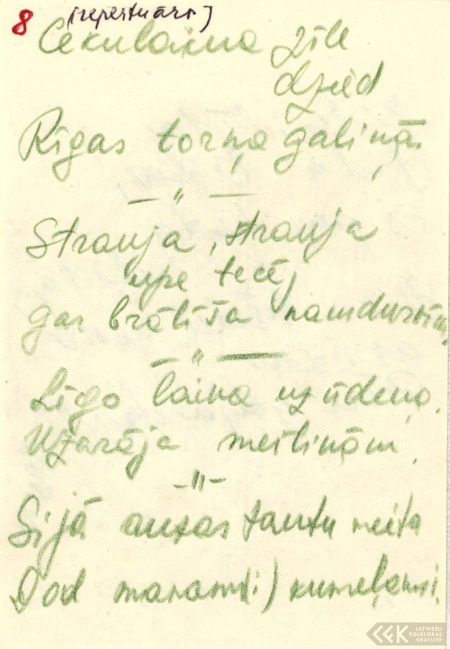 8 (repertuārs)
Cekulaiņa zīle
dzied
Rīgas torņa galiņā.
— " —
Strauja, strauja
upe tecēj
gar brālīša namdurvīm,
— " —
Līgo laiva uz ūdeņa,
Uzarāja meitiņām,
— " —
Sijā auzas tautu meita
Dod manam(i) kumeļami,
LATVIEŠU
FOLKLORAS
KRĀTUVE